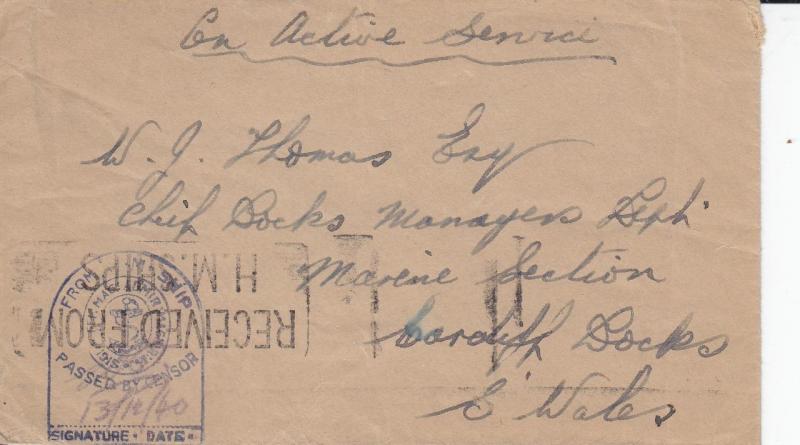 On Active Service
W. J. Thomas Esq
Chief Docks Managers Dept.
Marine Section
Cardiff Docks
S Wales
RECEIVED FROM
H.M. SHIPS
FROM SHIP
PASSED BY CENSOR
13/12/40
SIGNATURE · DATE